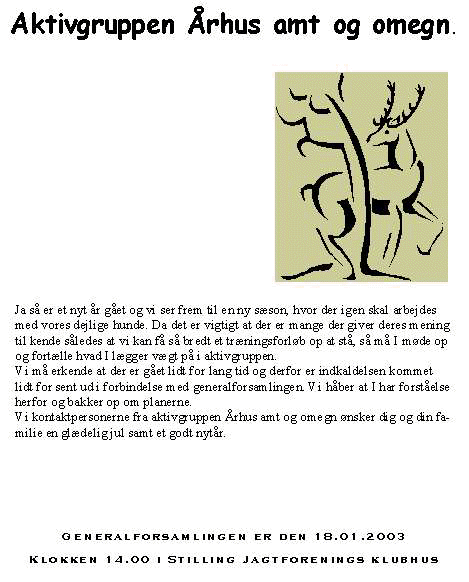 Aktivgruppen Århus amt og omegn.
Ja så er et nyt år gået og vi ser frem til en ny sæson, hvor der igen skal arbejdes
med vores dejlige hunde. Da det er vigtigt at der er mange der giver deres mening
til kende således at vi kan få så bredt et træningsforløb op at stå, så må I møde op
og fortælle hvad I lægger vægt på i aktivgruppen.
Vi må erkende at der er gået lidt for lang tid og derfor er indkaldelsen kommet
lidt for sent ud i forbindelse med generalforsamlingen. Vi håber at I har forståelse
herfor og bakker op om planerne.
Vi kontaktpersonerne fra aktivgruppen Århus amt og omegn ønsker dig og din fa-
milie en glædelig jul samt et godt nytår.
Generalforsamlingen er den 18.01.2003
Klokken 14.00 i Stilling Jagtforenings klubhus